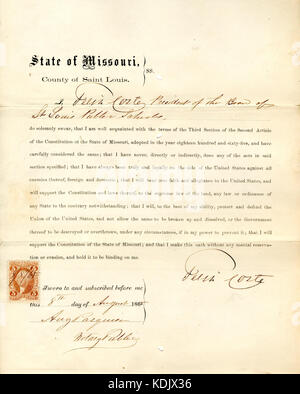 State of Missouri,
County of Saint Louis. } SS.
I, Felix Coste President of the Board of
St Louis Public Schools
do solemnly swear, that I am well acquainted with the terms of the Third Section of the Second Article
of the Constitution of the State of Missouri, adopted in the year eighteen hundred and sixty-five, and
have carefully considered the same; that I have never, directly or indirectly, done any of the acts in said
section specified; that I have always been truly and loyally on the side of the United States against all
enemies thereof, foreign and domestic; that I will bear true faith and allegiance to the United States, and
will support the Constitution and laws thereof, as the supreme law of the land, any law or ordinance of
any State to the contrary notwithstanding; that I will, to the best of my ability, protect and defend the
Union of the United States, and not allow the same to be broken up and dissolved, or the Government
thereof to be destroyed or overthrown, under any circumstances, if in my power to prevent it; that I will
support the Constitution of the State of Missouri; and that I make this oath without any mental reserva-
tion or evasion, and hold it to be binding on me.
Felix Coste
Sworn to and subscribed before me
this 8th day of August 186
Notary Public
alamy
Image ID: KDJX36
www.alamy.com